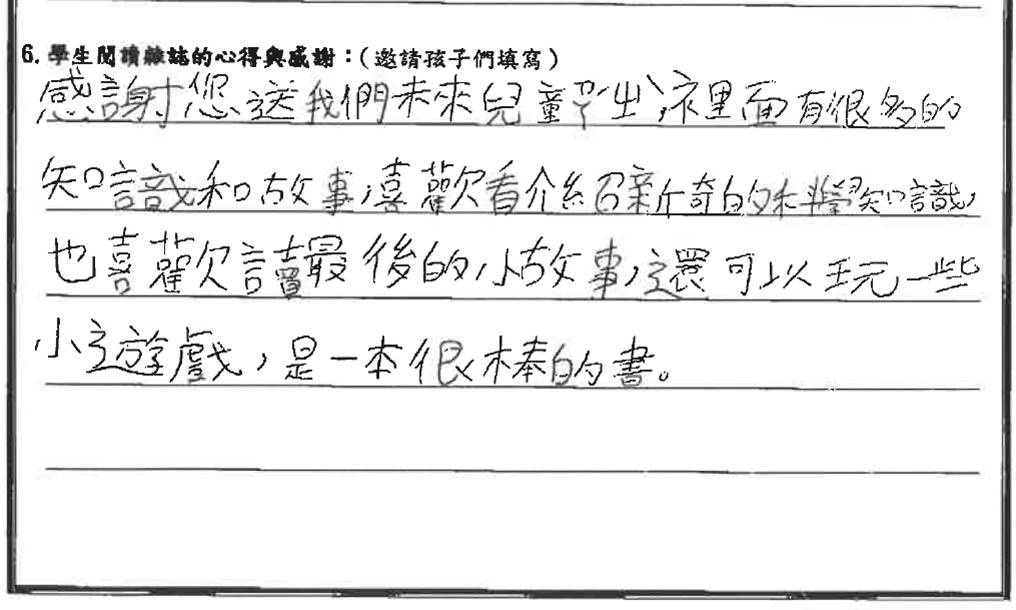 6. 學生閱讀雜誌的心得與感謝：(邀請孩子們填寫)
感謝您送我們未來兒童，裡面有很多的
知識和故事，喜歡看介紹新奇的科學知識，
也喜歡讀最後的小故事，還可以玩一些
小遊戲，是一本很棒的書。